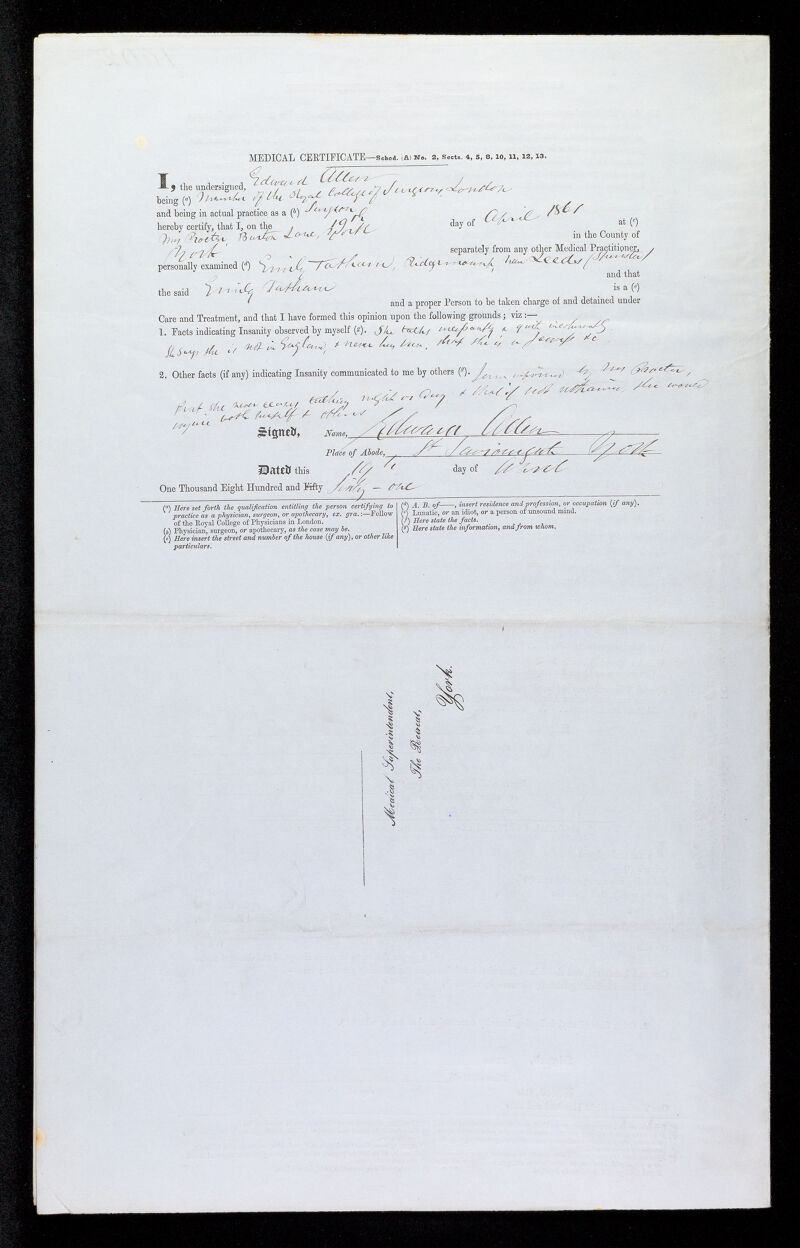 MEDICAL CERTIFICATE—Sched. (A) No. 2, Sects. 4, 5, 8, 10, 11, 12, 13.
I, the undersigned, Edward Allen
being (a) Member of the Royal College of Surgeons London
and being in actual practice as a (b) Surgeon
hereby certify, that I, on the 19th day of April 1861 at (c)
Mrs Procter, Burton Lane, York in the County of
York separately from any other Medical Practitioner,
personally examined (d) Emily Tatham, Ridgemount, near Leeds (Spinster) and that
the said Emily Tatham is a (e)
and a proper Person to be taken charge of and detained under
Care and Treatment, and that I have formed this opinion upon the following grounds; viz:—
1. Facts indicating Insanity observed by myself (f). She talks incessantly & quite incoherently
She says she is not in England, & never has been, that she is a Jewess &c
2. Other facts (if any) indicating Insanity communicated to me by others (g). I am informed by Mrs Procter,
that she never ceases talking night or day & that if not restrained she would
injure both herself & others
Signed, Name, Edward Allen
Place of Abode, St Saviourgate York
Dated this 19th day of April
One Thousand Eight Hundred and Fifty Sixty-one
(a) Here set forth the qualification entitling the person certifying to
practice as a physician, surgeon, or apothecary, ex. gra.:—Fellow
of the Royal College of Physicians in London.
(b) Physician, surgeon, or apothecary, as the case may be.
(c) Here insert the street and number of the house (if any), or other like
particulars.
(d) A. B. of——, insert residence and profession, or occupation (if any).
(e) Lunatic, or an idiot, or a person of unsound mind.
(f) Here state the facts.
(g) Here state the information, and from whom.
Medical Superintendent,
The Retreat,
York.